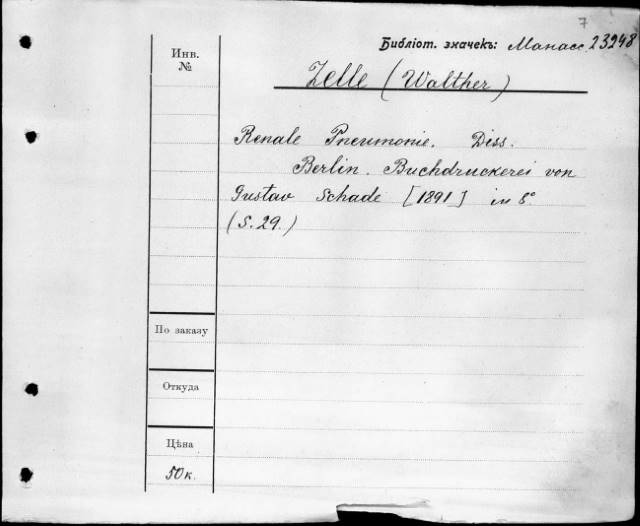 7
Библіот. значекъ: Манасс. 23248
Инв.
№
Zelle (Walther)
Renale Pneumonie. Diss.
Berlin. Buchdruckerei von
Gustav Schade [1891] in 8°
(S. 29.)
По заказу
Откуда
Цѣна
50 к.